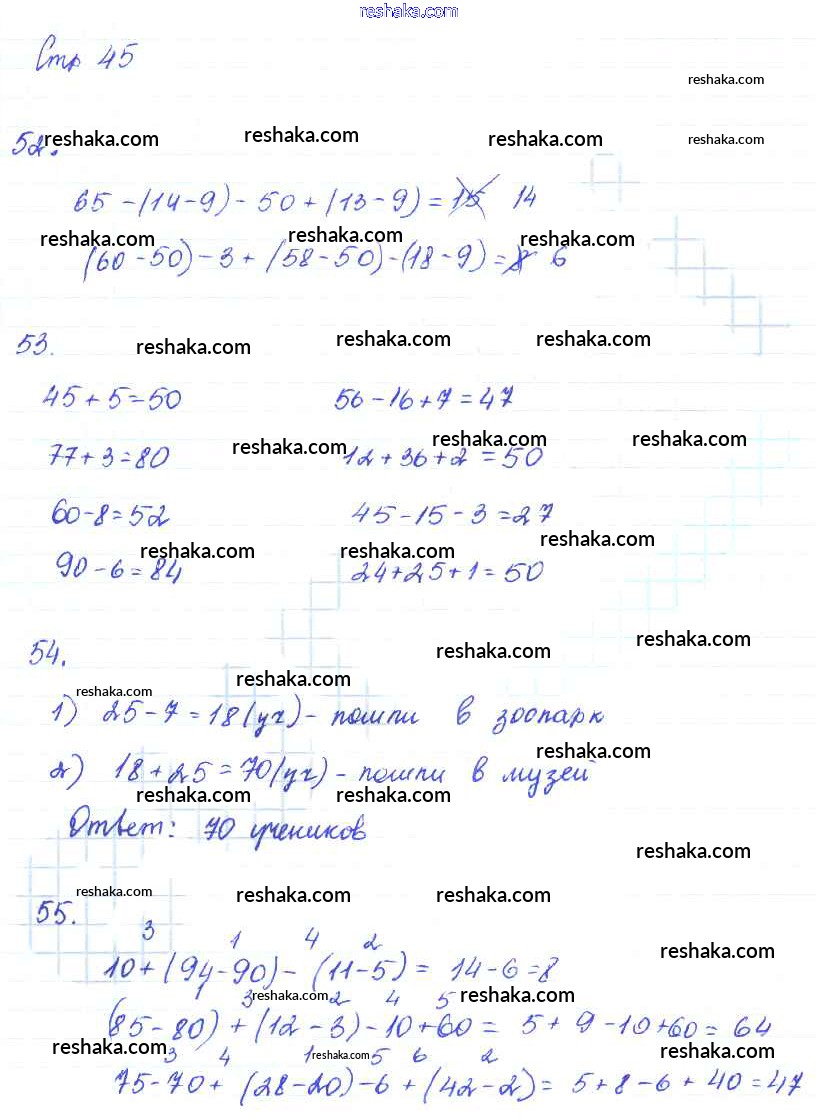 reshaka.com
Стр 45
reshaka.com
52.
reshaka.com reshaka.com reshaka.com reshaka.com
65 - (14 - 9) - 50 + (13 - 9) = 15 14
reshaka.com reshaka.com reshaka.com
(60 - 50) - 3 + (58 - 50) - (18 - 9) = 8 6
53.
reshaka.com reshaka.com reshaka.com
45 + 5 = 50 56 - 16 + 7 = 47
reshaka.com reshaka.com reshaka.com
77 + 3 = 80 12 + 36 + 2 = 50
60 - 8 = 52 45 - 15 - 3 = 27
reshaka.com reshaka.com reshaka.com
90 - 6 = 84 24 + 25 + 1 = 50
54.
reshaka.com reshaka.com
reshaka.com reshaka.com
1) 25 - 7 = 18 (уч) - пошли в зоопарк
reshaka.com
2) 18 + 25 = 70 (уч) - пошли в музей
reshaka.com reshaka.com
Ответ: 70 учеников
reshaka.com
reshaka.com reshaka.com reshaka.com
55.
3 1 4 2
reshaka.com
10 + (94 - 90) - (11 - 5) = 14 - 6 = 8
1 3 reshaka.com 2 4 5 reshaka.com
(85 - 80) + (12 - 3) - 10 + 60 = 5 + 9 - 10 + 60 = 64
reshaka.com reshaka.com
3 4 1 reshaka.com 5 6 2
75 - 70 + (28 - 20) - 6 + (42 - 2) = 5 + 8 - 6 + 40 = 47